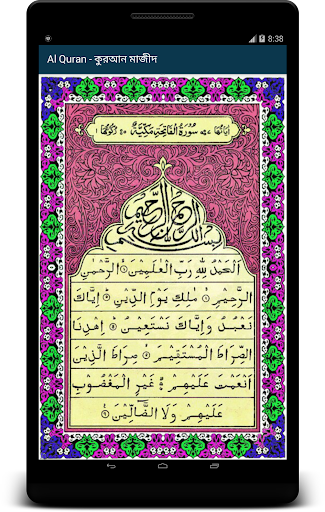 8:38
Al Quran - কুরআন মাজীদ
اٰيَاتُهَا ٧ سُوْرَةُ الْفَاتِحَةِ مَكِّيَّةٌ رُكُوْعُهَا ١
بِسْمِ اللّٰهِ الرَّحْمٰنِ الرَّحِيْمِ
اَلْحَمْدُ لِلّٰهِ رَبِّ الْعٰلَمِيْنَ ۙ الرَّحْمٰنِ
الرَّحِيْمِ ۙ مٰلِكِ يَوْمِ الدِّيْنِ ؕ اِيَّاكَ
نَعْبُدُ وَاِيَّاكَ نَسْتَعِيْنُ ؕ اِهْدِنَا
الصِّرَاطَ الْمُسْتَقِيْمَ ۙ صِرَاطَ الَّذِيْنَ
اَنْعَمْتَ عَلَيْهِمْ ۙ غَيْرِ الْمَغْضُوْبِ
عَلَيْهِمْ وَلَا الضَّآلِّيْنَ